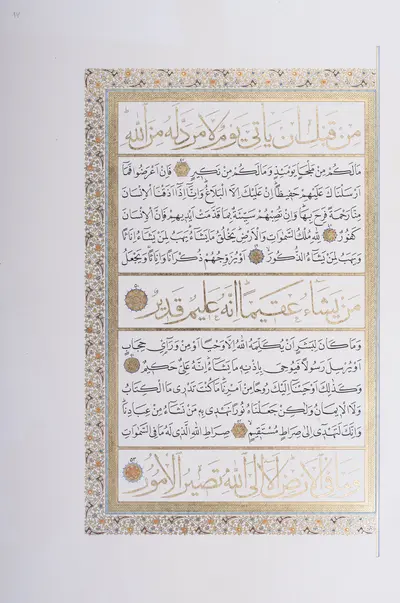 ١٧
مِنْ قَبْلِ أَنْ يَأْتِيَ يَوْمٌ لَا مَرَدَّ لَهُ مِنَ اللَّهِ
مَا لَكُمْ مِنْ مَلْجَإٍ يَوْمَئِذٍ وَمَا لَكُمْ مِنْ نَكِيرٍ فَإِنْ أَعْرَضُوا فَمَا
أَرْسَلْنَاكَ عَلَيْهِمْ حَفِيظًا إِنْ عَلَيْكَ إِلَّا الْبَلَاغُ وَإِنَّا إِذَا أَذَقْنَا الْإِنْسَانَ
مِنَّا رَحْمَةً فَرِحَ بِهَا وَإِنْ تُصِبْهُمْ سَيِّئَةٌ بِمَا قَدَّمَتْ أَيْدِيهِمْ فَإِنَّ الْإِنْسَانَ
كَفُورٌ لِلَّهِ مُلْكُ السَّمٰوَاتِ وَالْأَرْضِ يَخْلُقُ مَا يَشَاءُ يَهَبُ لِمَنْ يَشَاءُ إِنَاثًا
وَيَهَبُ لِمَنْ يَشَاءُ الذُّكُورَ أَوْ يُزَوِّجُهُمْ ذُكْرَانًا وَإِنَاثًا وَيَجْعَلُ
مَنْ يَشَاءُ عَقِيمًا إِنَّهُ عَلِيمٌ قَدِيرٌ
وَمَا كَانَ لِبَشَرٍ أَنْ يُكَلِّمَهُ اللَّهُ إِلَّا وَحْيًا أَوْ مِنْ وَرَائِ حِجَابٍ
أَوْ يُرْسِلَ رَسُولًا فَيُوحِيَ بِإِذْنِهِ مَا يَشَاءُ إِنَّهُ عَلِيٌّ حَكِيمٌ
وَكَذٰلِكَ أَوْحَيْنَا إِلَيْكَ رُوحًا مِنْ أَمْرِنَا مَا كُنْتَ تَدْرِي مَا الْكِتَابُ
وَلَا الْإِيمَانُ وَلٰكِنْ جَعَلْنَاهُ نُورًا نَهْدِي بِهِ مَنْ نَشَاءُ مِنْ عِبَادِنَا
وَإِنَّكَ لَتَهْدِي إِلَى صِرَاطٍ مُسْتَقِيمٍ صِرَاطِ اللَّهِ الَّذِي لَهُ مَا فِي السَّمٰوَاتِ
وَمَا فِي الْأَرْضِ أَلَا إِلَى اللَّهِ تَصِيرُ الْأُمُورُ